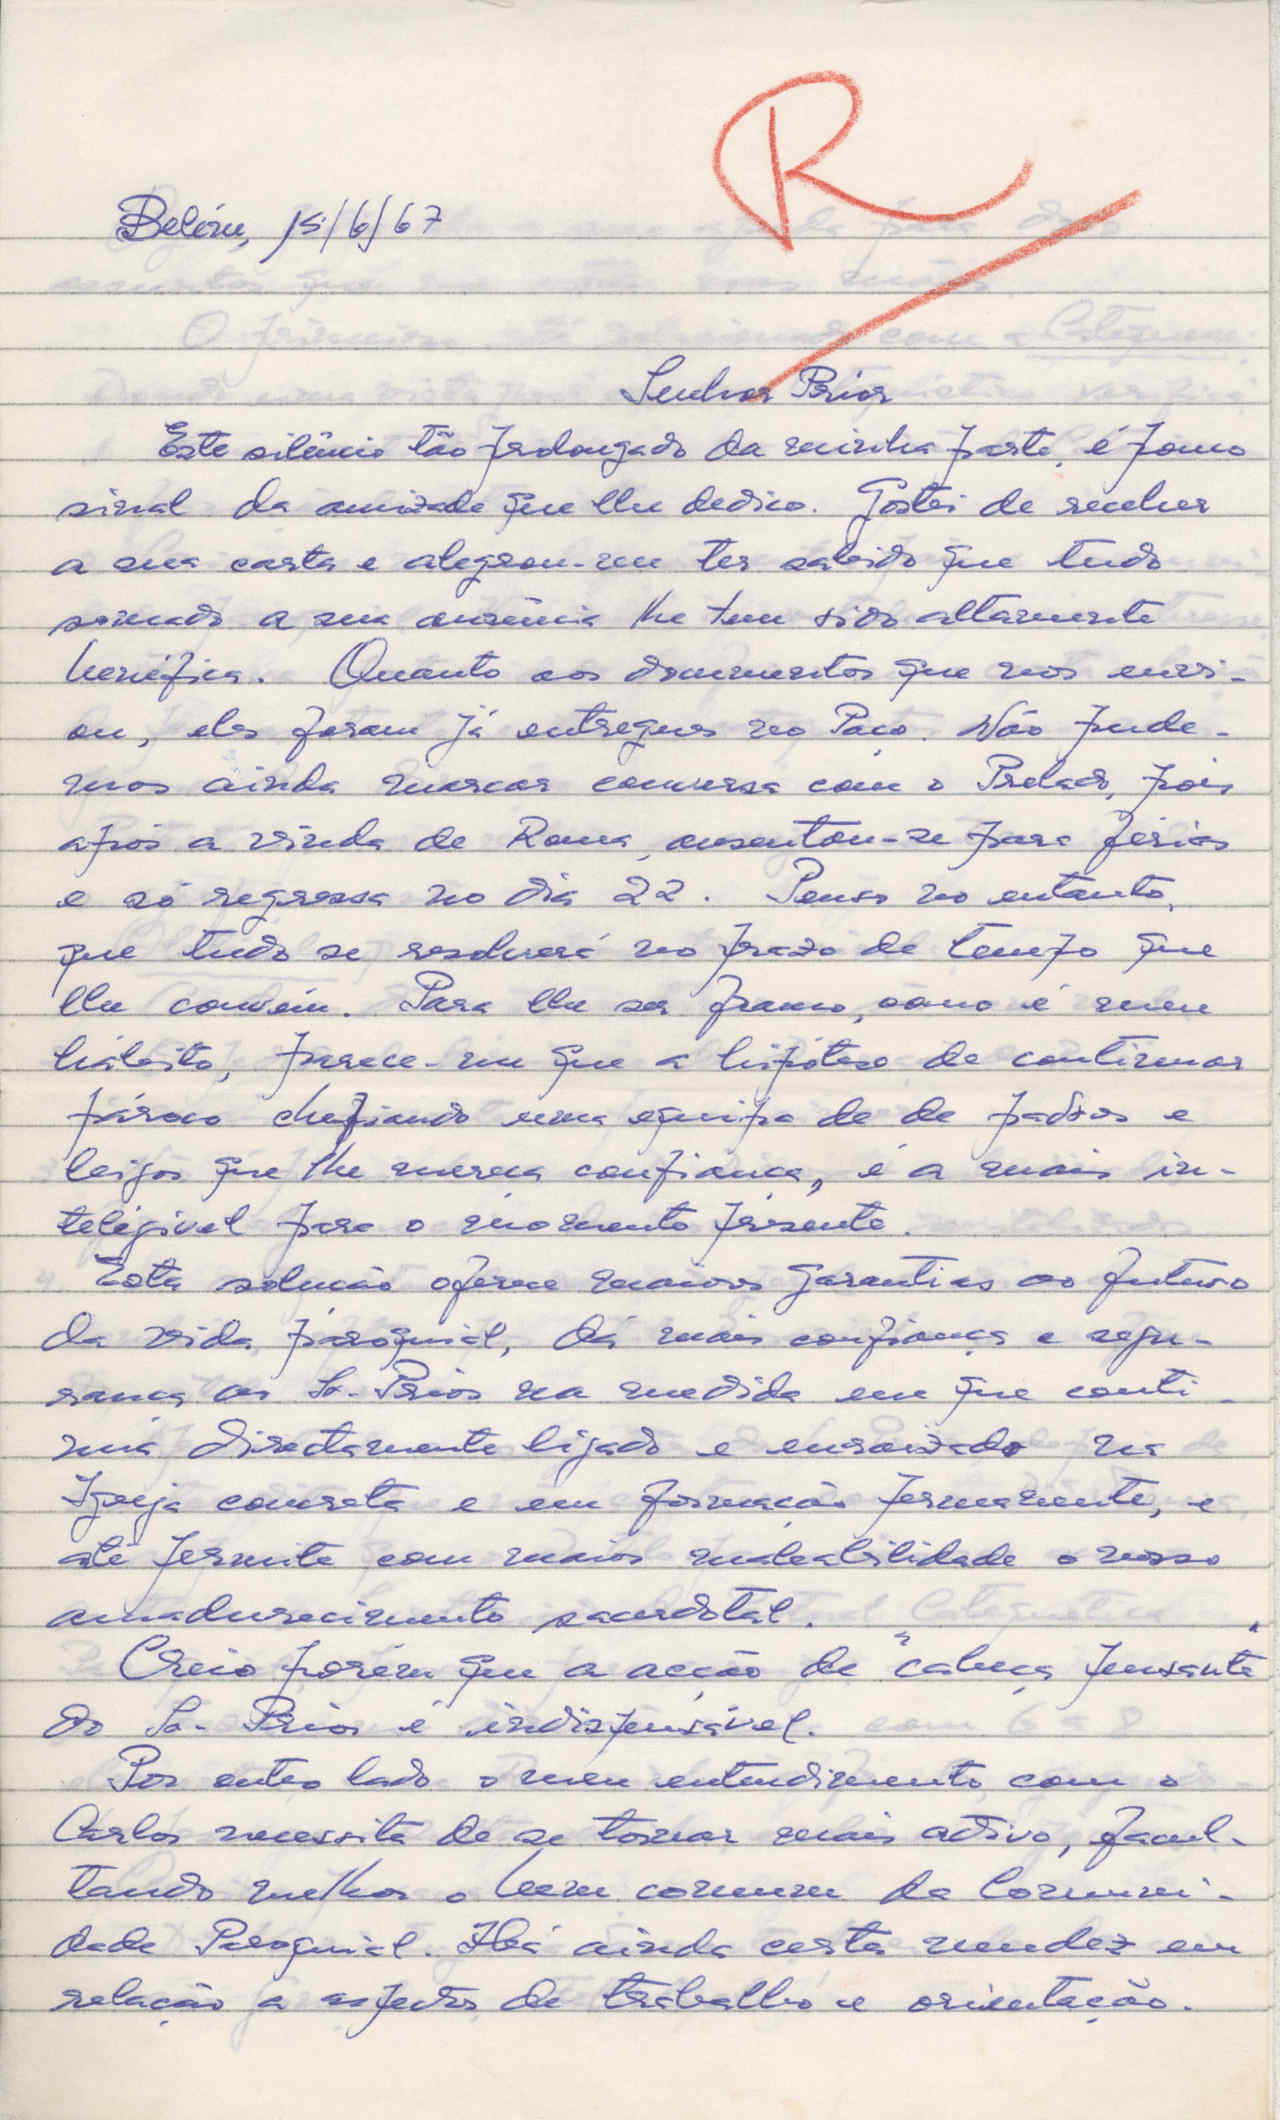 R
Belém, 15/6/67
Senhor Prior
Este silêncio tão prolongado da minha parte, é pouco
sinal da amizade que lhe dedico. Gostei de receber
a sua carta e alegrou-me ter sabido que tudo
somado a sua ausência lhe tem sido altamente
benéfica. Quanto aos documentos que nos envi-
ou, eles foram já entregues no Paço. Não pude-
mos ainda marcar conversa com o Prelado, pois
após a vinda de Roma, ausentou-se para férias
e só regressa no dia 22. Penso no entanto,
que tudo se resolverá no prazo de tempo que
lhe convém. Para lhe ser franco, como é meu
hábito, parece-me que a hipótese de continuar
pároco chefiando uma equipa de de padres e
leigos que lhe mereça confiança, é a mais in-
teligível para o momento presente.
Esta solução oferece maiores garantias ao futuro
da vida paroquial, dá mais confiança e segu-
rança ao Sr. Prior na medida em que conti-
nua directamente ligado e enraizado na
Igreja concreta e em formação permanente, e
até permite com maior maleabilidade o nosso
amadurecimento sacerdotal.
Creio porém que a acção de "cabeça pensante"
do Sr. Prior é indispensável.
Por outro lado o meu entendimento com o
Carlos necessita de se tornar mais activo, facul-
tando melhor o bem comum da Comuni-
dade Paroquial. Há ainda certa mudez em
relação a aspectos de trabalho e orientação.